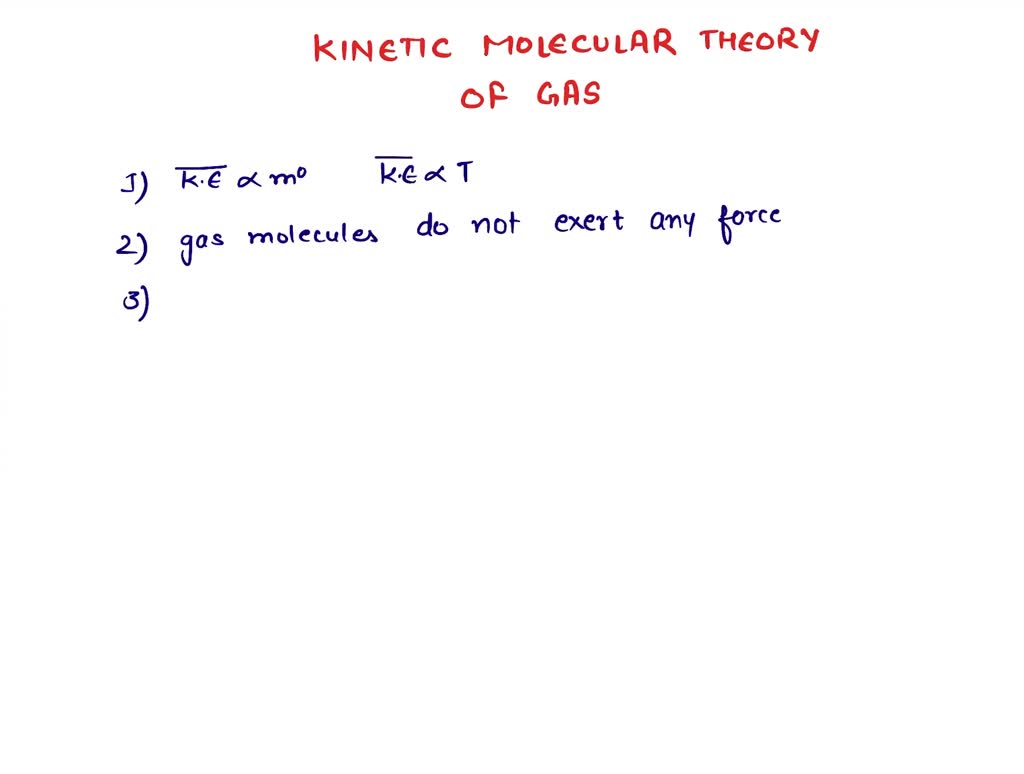 KINETIC MOLECULAR THEORY
OF GAS
1) K.E ∝ m⁰ K.E ∝ T
2) gas molecules do not exert any force
3)